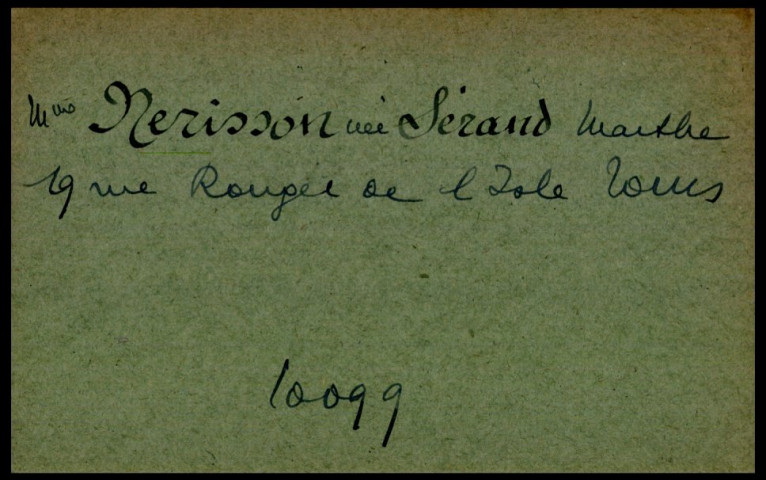 Mme Nerisson née Sérand Marthe
19 rue Rouget de l'Isle Tours
10099